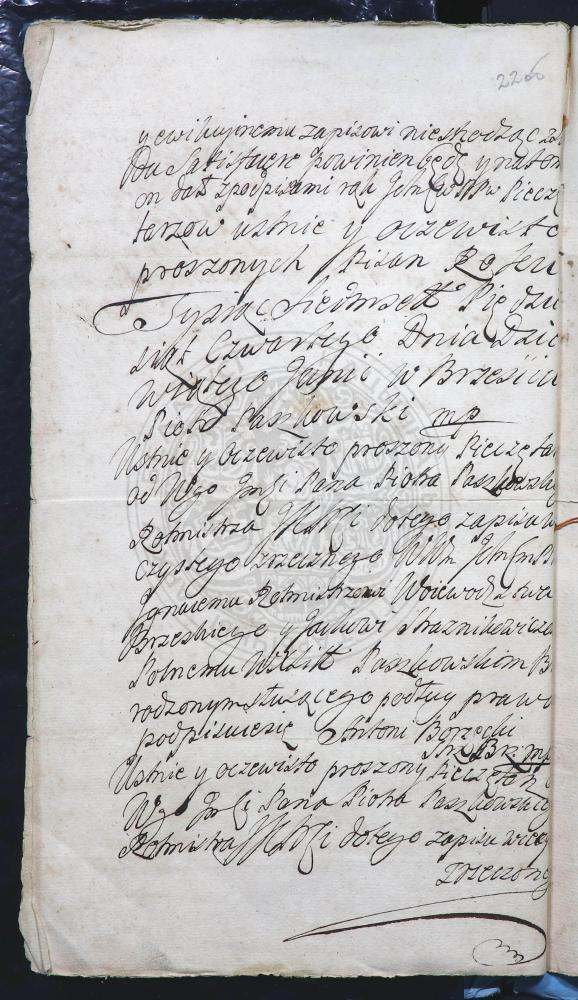 2266
y ewikujnemu zapisowi nieszkodząc za
Du Satisfakcję powinien będę y na tom
m dał z podpisami rąk Ichm PPw Pieczę
tarzow ustnie y oczewisto
proszonych Pisan Roku
Tysiąc Siedmset Pięćdzie
siąt Czwartego Dnia Dzie
wiątego Junii w Brześciu
Piotr Paszkowski mp
Ustnie y oczewisto proszony Pieczętar
od Wgo Jmsci Pana Piotra Paszkowskie
Rotmistrza do tego zapisu w
czystego zrzecznego WWm Ichm
Ignacemu Rotmistrzowi Woiewodztwa
Brzeskiego y Jachowi Straznikiewiczo
Polnemu WXLitt Paszkowskim B
rodzonym służącego podług prawa
podpisuie się Antoni Borzęcki
Brz: mp
Ustnie y oczewisto proszony Pieczętar
Wgo Jmsci Pana Piotra Paszkowskieg
Rotmistrza do tego zapisu wiecz
zrzeczone